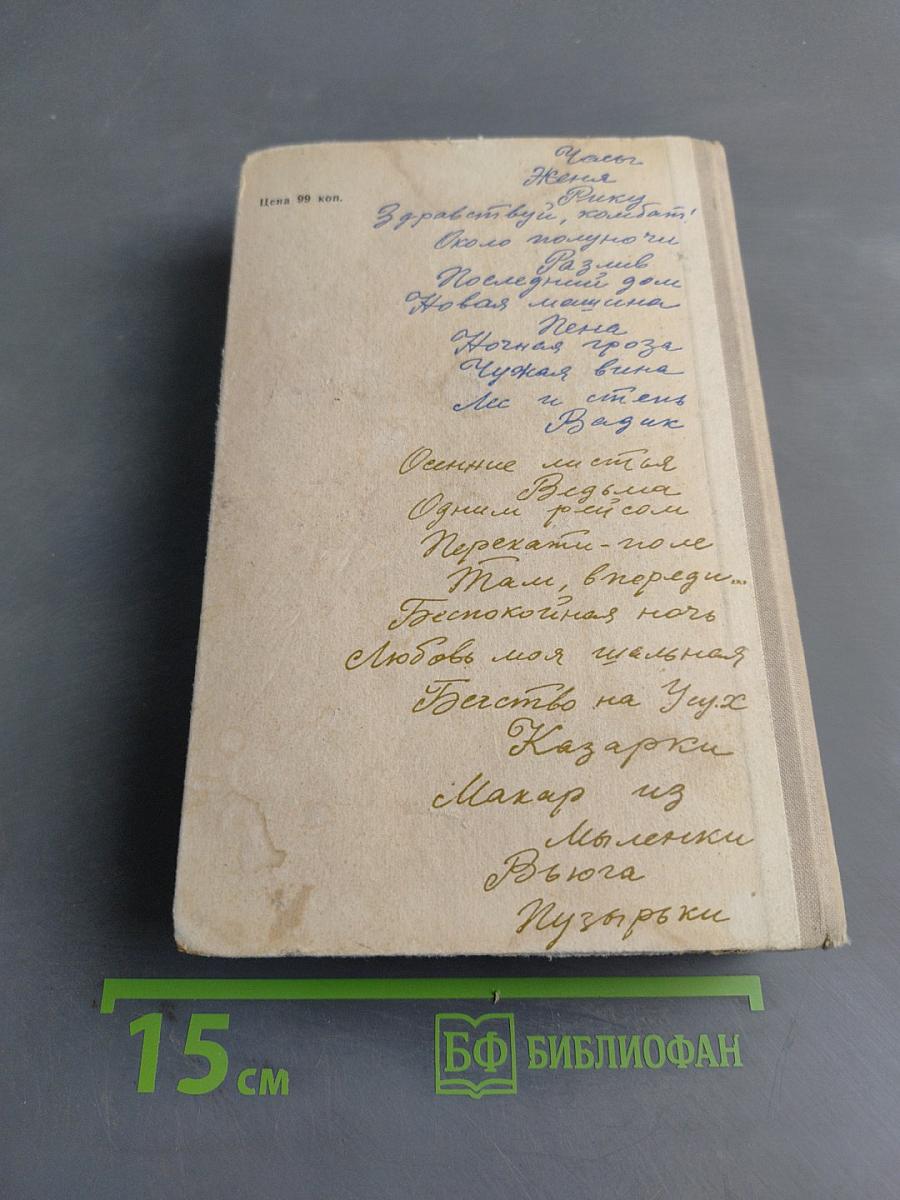 Цена 99 коп.
Часы
Женя
Рикц
Здравствуй, комбат!
Около полуночи
Разлив
Последний дом
Новая машина
Пена
Ночная гроза
Чужая вина
Лес и степь
Вадик
Осенние листья
Ведьма
Одним рейсом
Перекати-поле
Там, впереди...
Беспокойная ночь
Любовь моя шальная
Бегство на Усух
Казарки
Макар из
Мыленки
Вьюга
Пузырьки
15 см
БФ БИБЛИОФАН